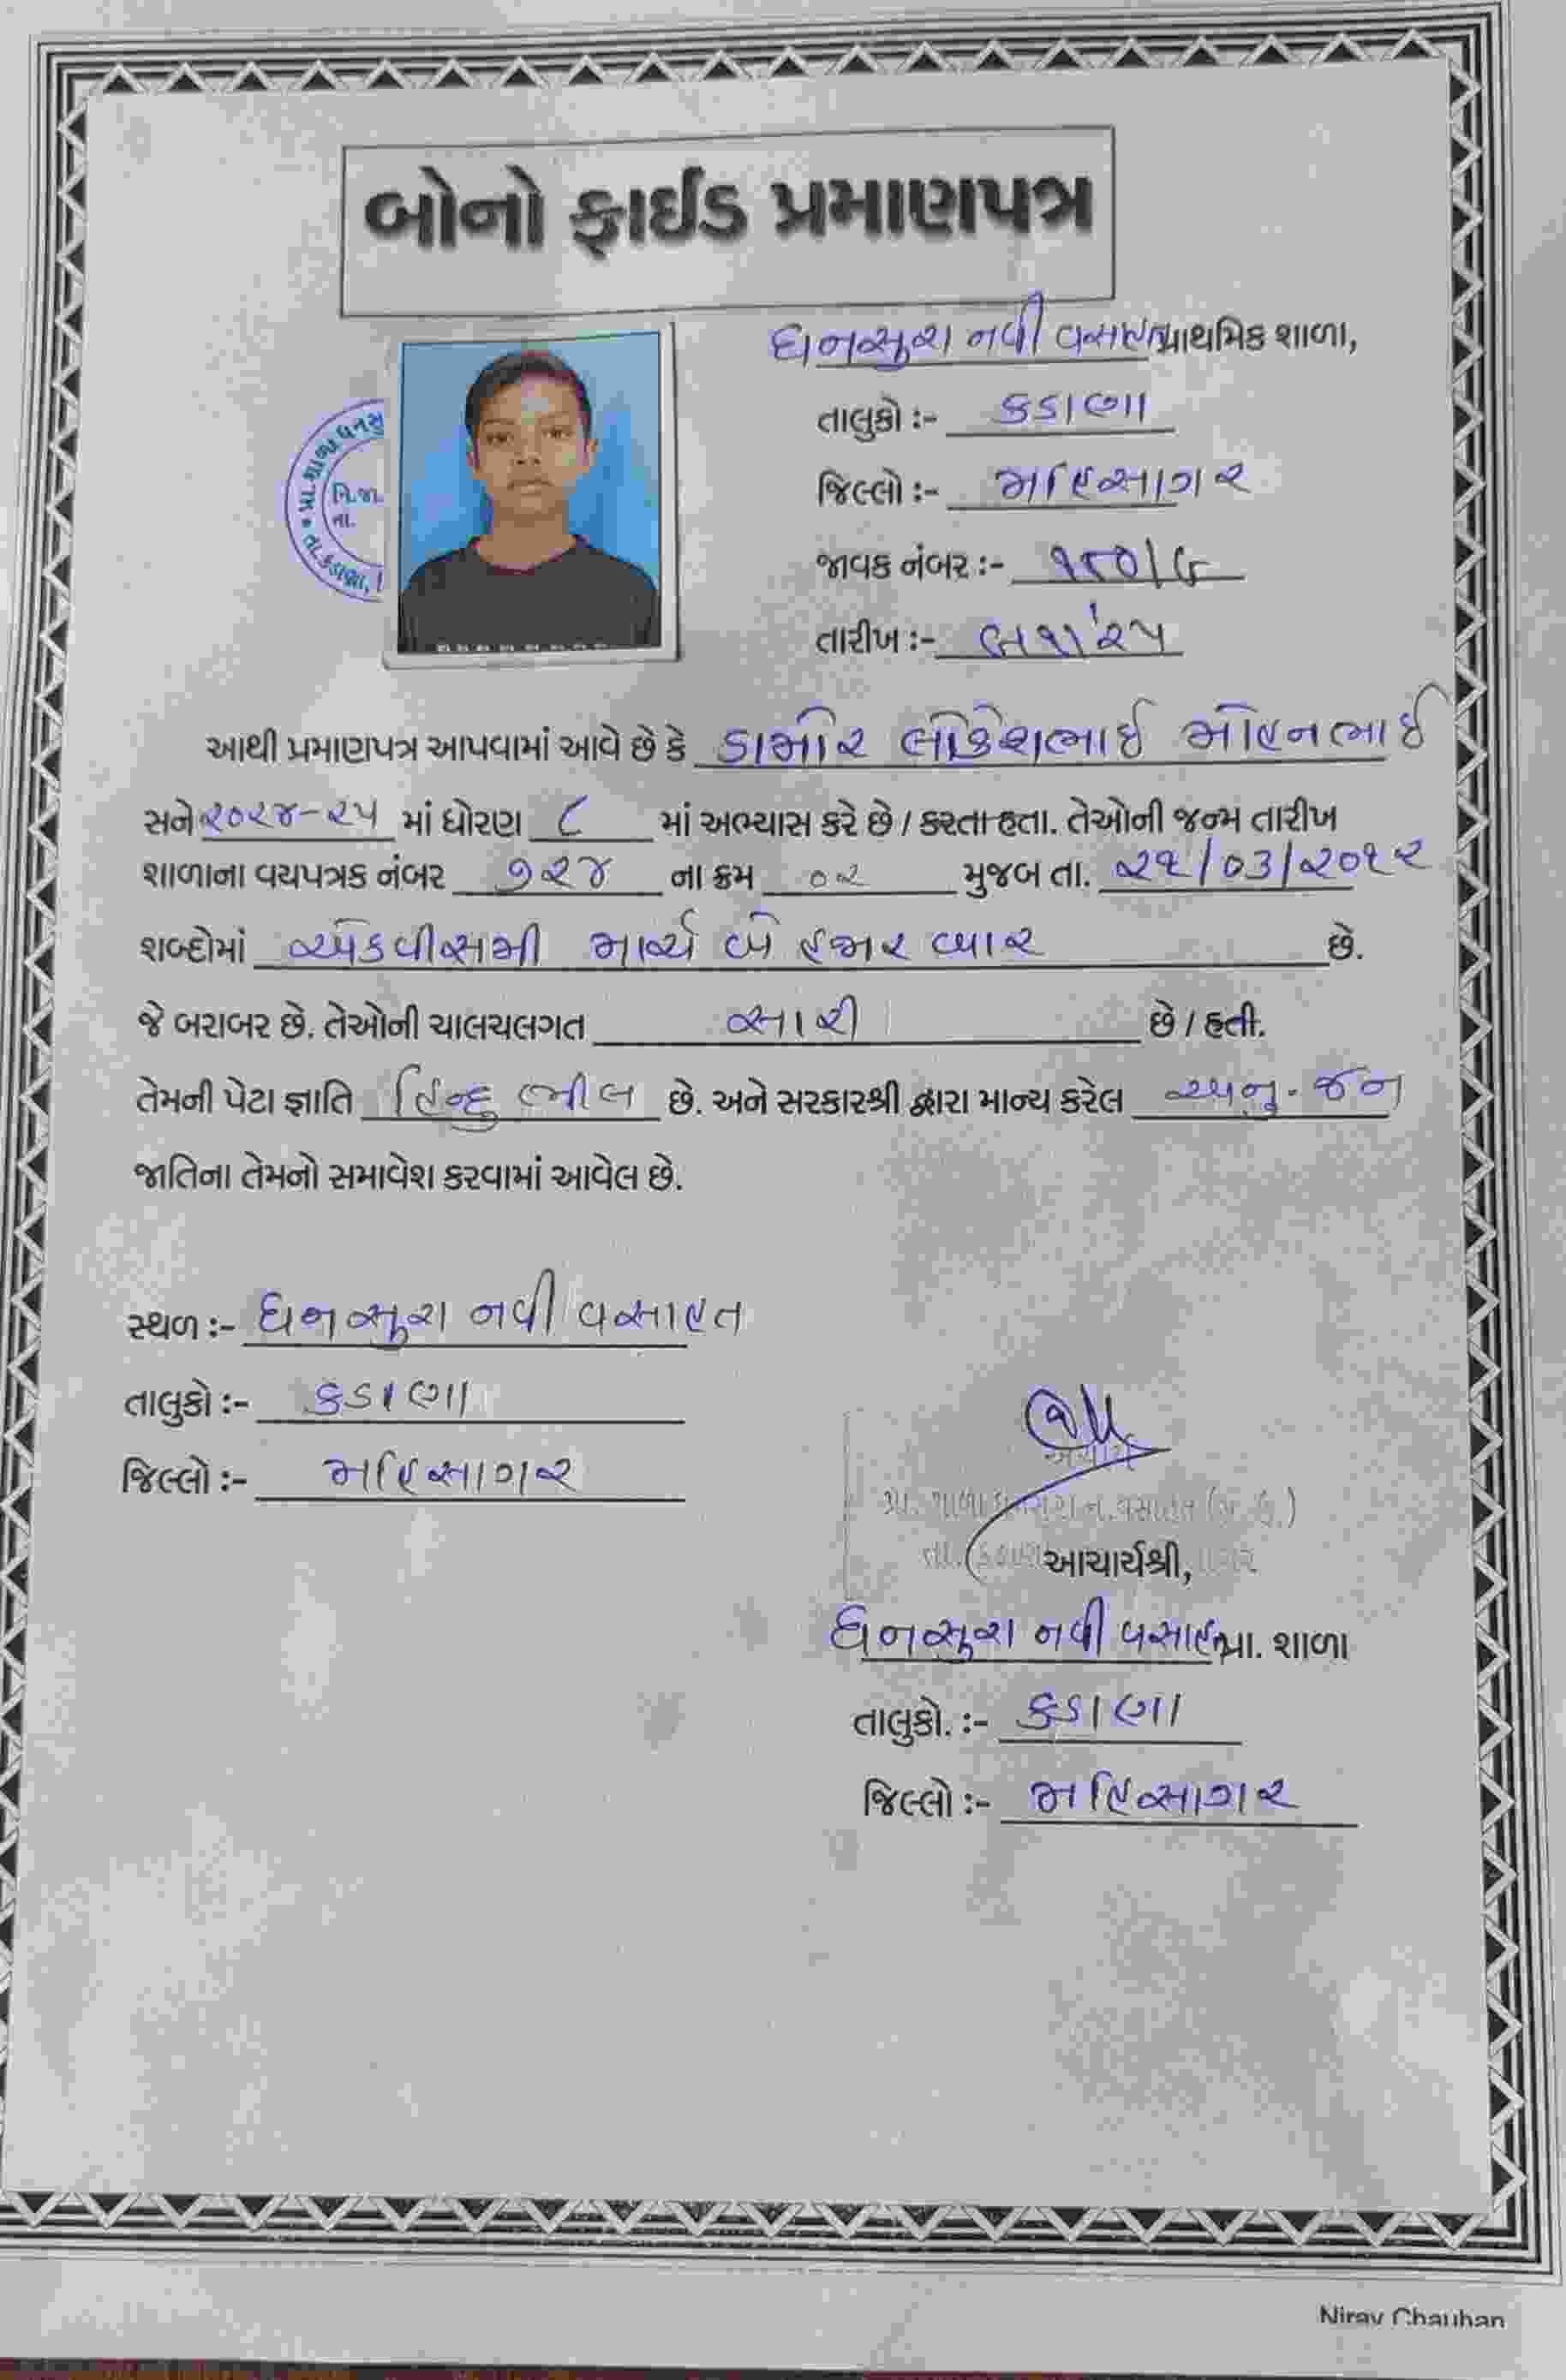 બોનો ફાઈડ પ્રમાણપત્ર
ધનસુરા નવી વસાહત પ્રાથમિક શાળા,
તાલુકો :- કડાણા
જિલ્લો :- મહિસાગર
જાવક નંબર :-
તારીખ :-
પ્રા.શાળા ધનસુ
તા.કડાણા,
આથી પ્રમાણપત્ર આપવામાં આવે છે કે ડામોર લોકેશભાઈ મોહનભાઈ
સને ૨૦૨૪-૨૫ માં ધોરણ ૮ માં અભ્યાસ કરે છે / કરતા હતા. તેઓની જન્મ તારીખ
શાળાના વયપત્રક નંબર ૭૨૪ ના ક્રમ ૦૨ મુજબ તા. ૨૧/૦૩/૨૦૧૨
શબ્દોમાં એકવીસમી માર્ચ બે હજાર બાર છે.
જે બરાબર છે. તેઓની ચાલચલગત સારી છે / હતી.
તેમની પેટા જ્ઞાતિ હિન્દુ ભીલ છે. અને સરકારશ્રી દ્વારા માન્ય કરેલ અનુ. જન
જાતિના તેમનો સમાવેશ કરવામાં આવેલ છે.
સ્થળ :- ધનસુરા નવી વસાહત
તાલુકો :- કડાણા
જિલ્લો :- મહિસાગર
આચાર્યશ્રી,
ધનસુરા નવી વસાહત પ્રા. શાળા
તાલુકો. :- કડાણા
જિલ્લો :- મહિસાગર
Nirav Chauhan